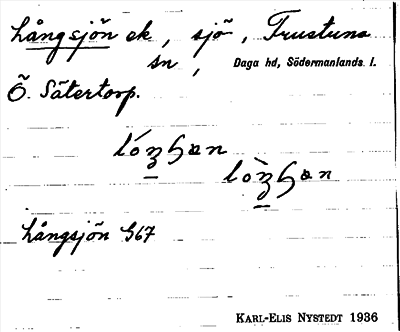 Långsjön ek, sjö, Trustuna
sn, Daga hd, Södermanlands l.
Ö. Sätertorp.
Långsjön G67
KARL-ELIS NYSTEDT 1936